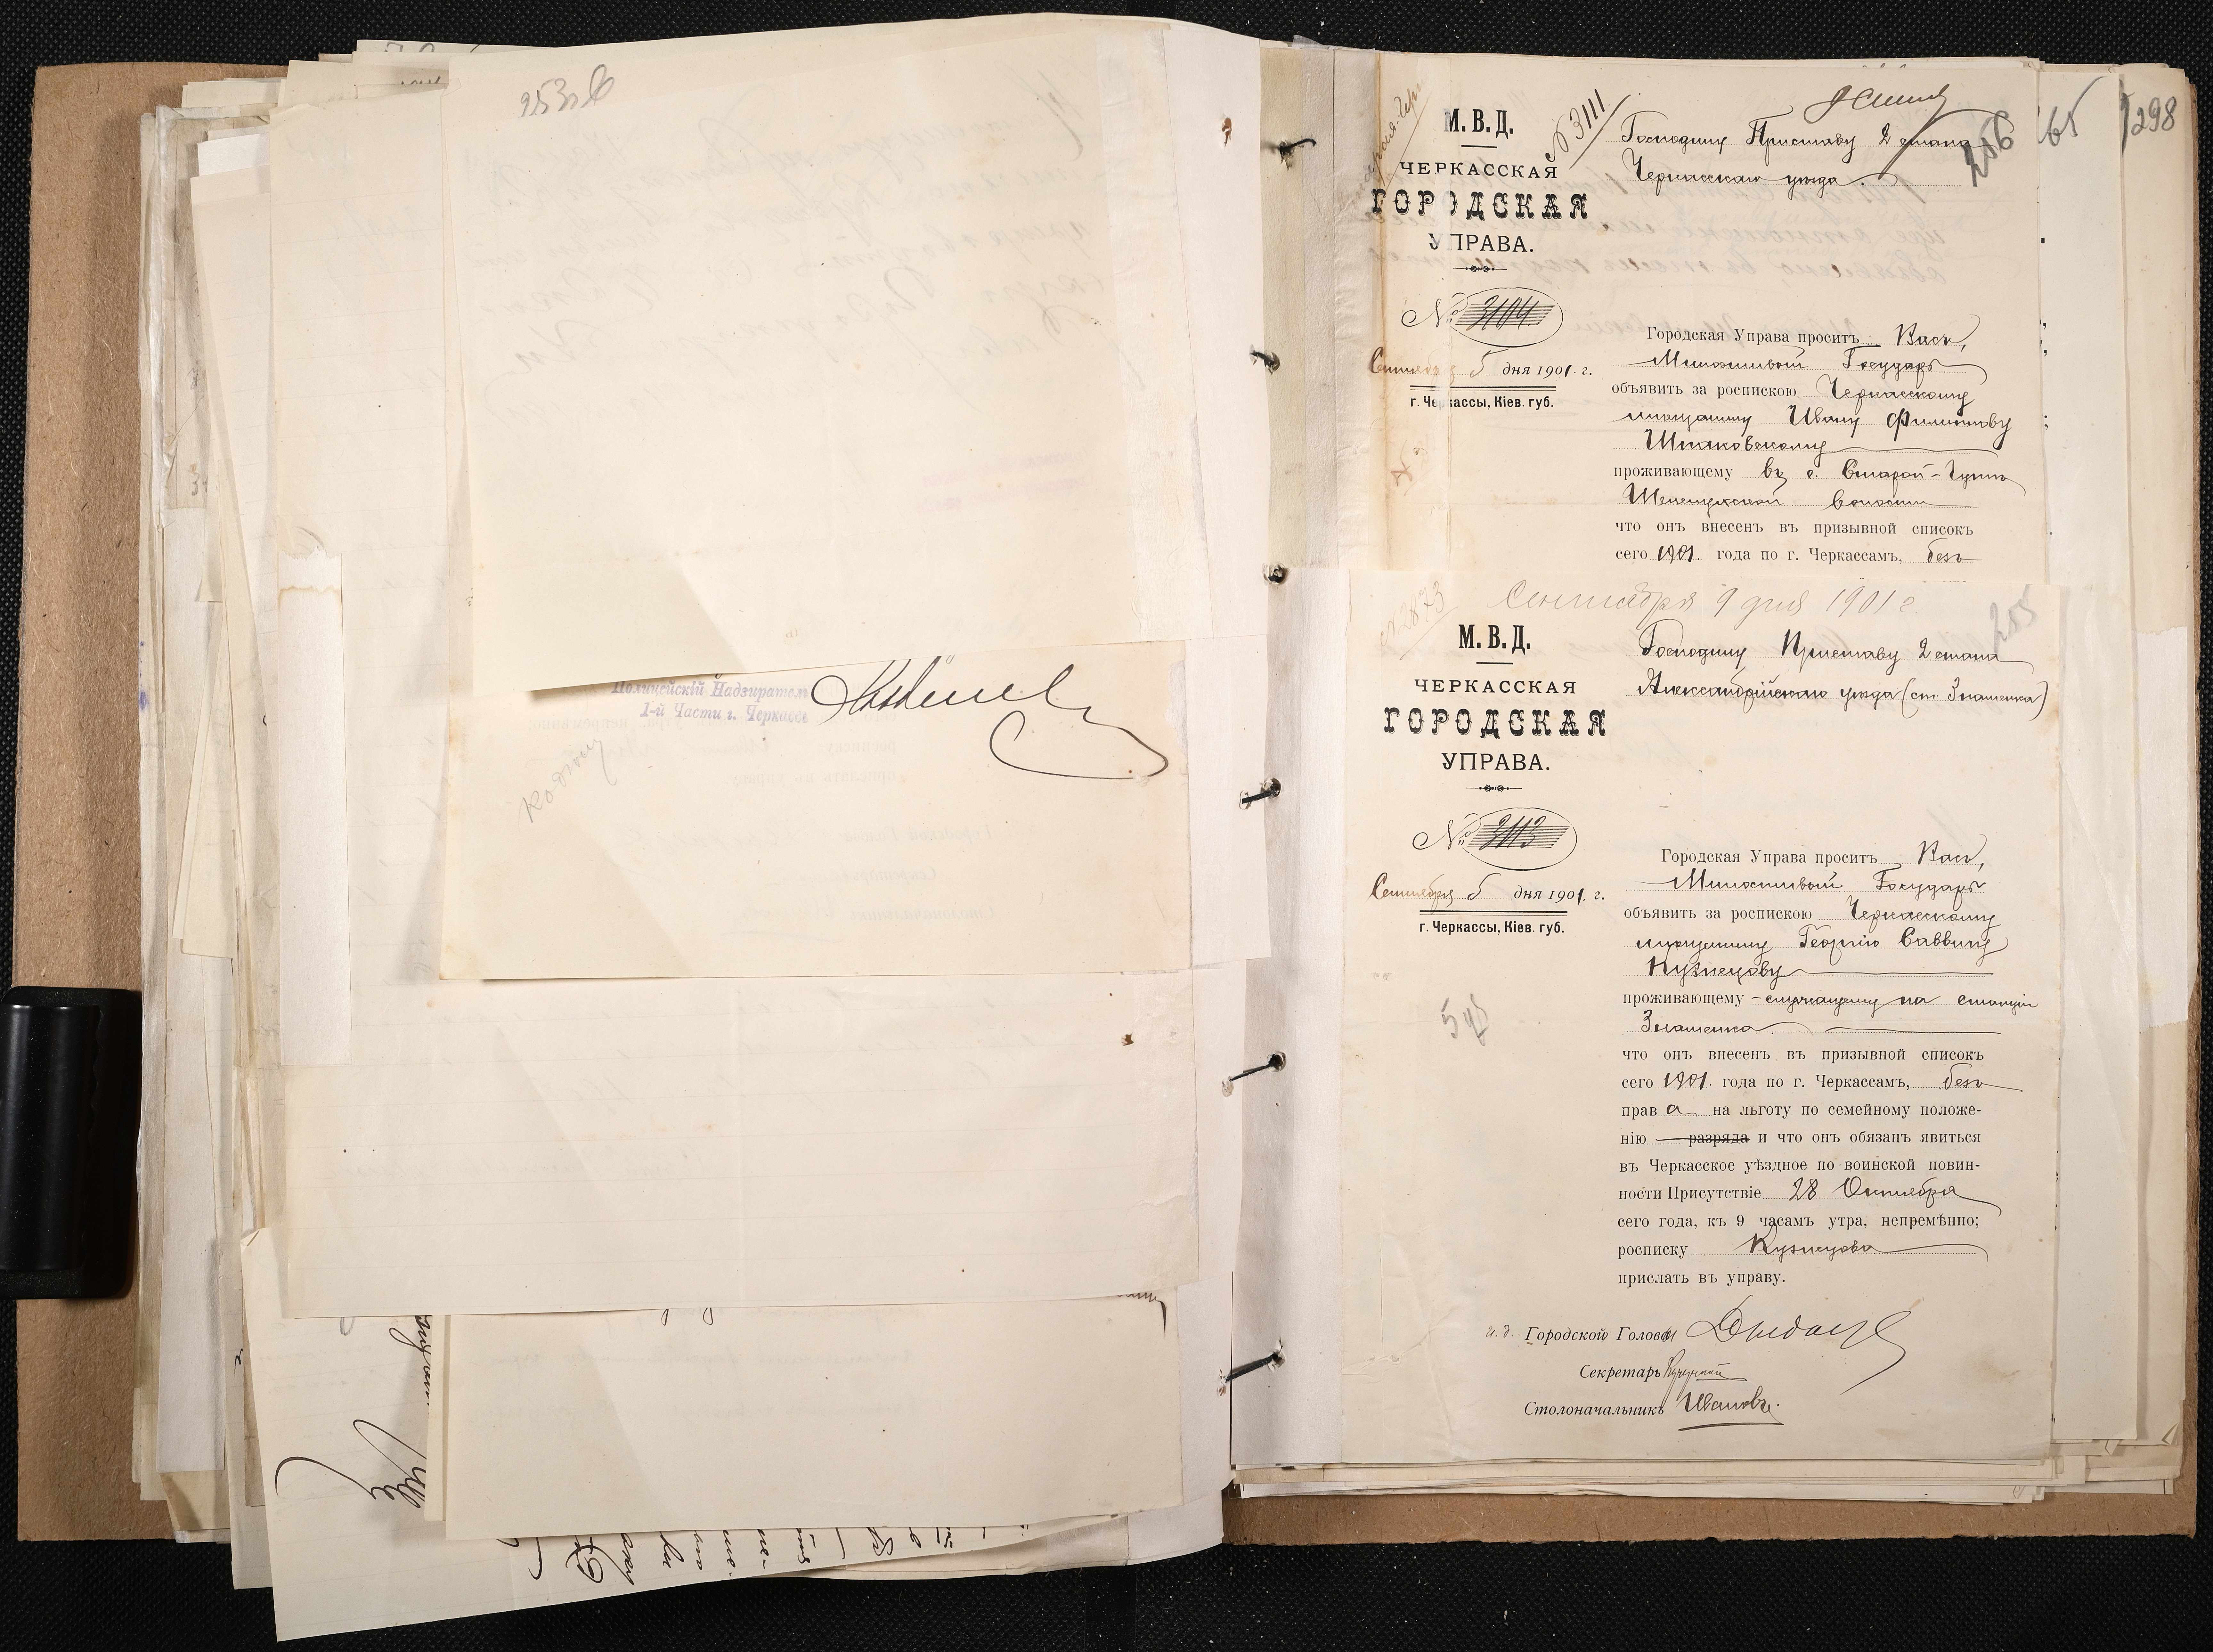 253об
Полицейскій Надзиратель
1-й Части г. Черкассъ
М. В. Д.
ЧЕРКАССКАЯ
ГОРОДСКАЯ
УПРАВА.
№ 3104
Сентября 5 дня 1901 г.
г. Черкассы, Кіев. губ.
№ 3111
256
Господину Приставу 2 стана
Черкасскаго уѣзда.
Городская Управа проситъ Васъ,
Милостивый Государь
объявить за роспискою Черкасскому
мѣщанину Ивану Филиппову
Шпаковскому
проживающему въ с. Старой-
волости
что онъ внесенъ въ призывной списокъ
сего 1901 года по г. Черкассамъ, безъ
65
298
Сентября 9 дня 1901 г.
255
№2873
М. В. Д.
ЧЕРКАССКАЯ
ГОРОДСКАЯ
УПРАВА.
№ 3113
Сентября 5 дня 1901 г.
г. Черкассы, Кіев. губ.
Господину Приставу 2 стана
Александрійскаго уѣзда (ст. Знаменка)
Городская Управа проситъ Васъ,
Милостивый Государь
объявить за роспискою Черкасскому
мѣщанину Георгію Саввину
Кузнецову
проживающему - служащему на станціи
Знаменка
что онъ внесенъ въ призывной списокъ
сего 1901 года по г. Черкассамъ, безъ
права на льготу по семейному положе-
нію разряда и что онъ обязанъ явиться
въ Черкасское уѣздное по воинской повин-
ности Присутствіе 28 Октября
сего года, къ 9 часамъ утра, непремѣнно;
росписку Кузнецова
прислать въ управу.
и. д. Городской Головы
Секретарь
Столоначальникъ Ивановъ.